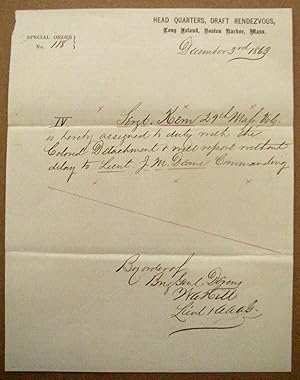 HEAD QUARTERS, DRAFT RENDEZVOUS,
Long Island, Boston Harbor, Mass.
SPECIAL ORDER
No. 118
December 3rd 1863
IV Sergt. Kern 29th Mass. Vol.
is hereby assigned to duty with the
Colored Detachment & will report without
delay to Lieut J. M. Commanding
By order of
Brig Genl Devens
Hill
Lieut & A.A.A.G.